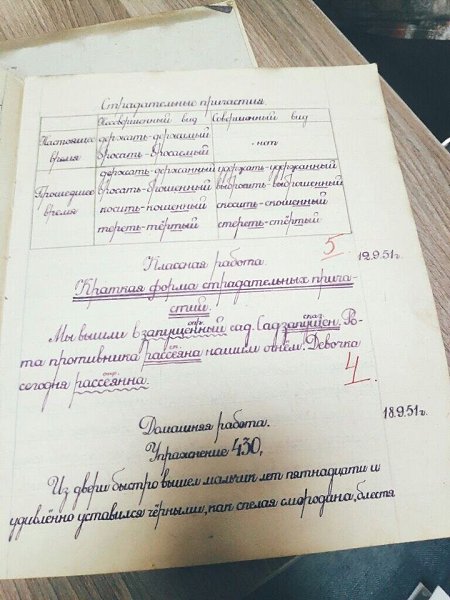 Страдательные причастия
Несовершенный вид Совершенный вид
Настоящее время
держать-держимый
бросать-бросаемый
нет
Прошедшее время
держать-держанный удержать-удержанный
бросать-брошенный выбросить-выброшенный
косить-кошенный скосить-скошенный
тереть-тёртый стереть-стёртый
5
Классная работа. 12.9.51г.
Краткая форма страдательных прича-
стий.
опр. сказ.
Мы вышли в запущенный сад. Сад запущен. Ро-
ск.
та противника рассеяна нашим огнём. Девочка
опр.
сегодня рассеянна.
4.
18.9.51г.
Домашняя работа.
Упражнение 430,
Из двери быстро вышел мальчик лет пятнадцати и
удивлённо уставился чёрными, как спелая смородина, блестя